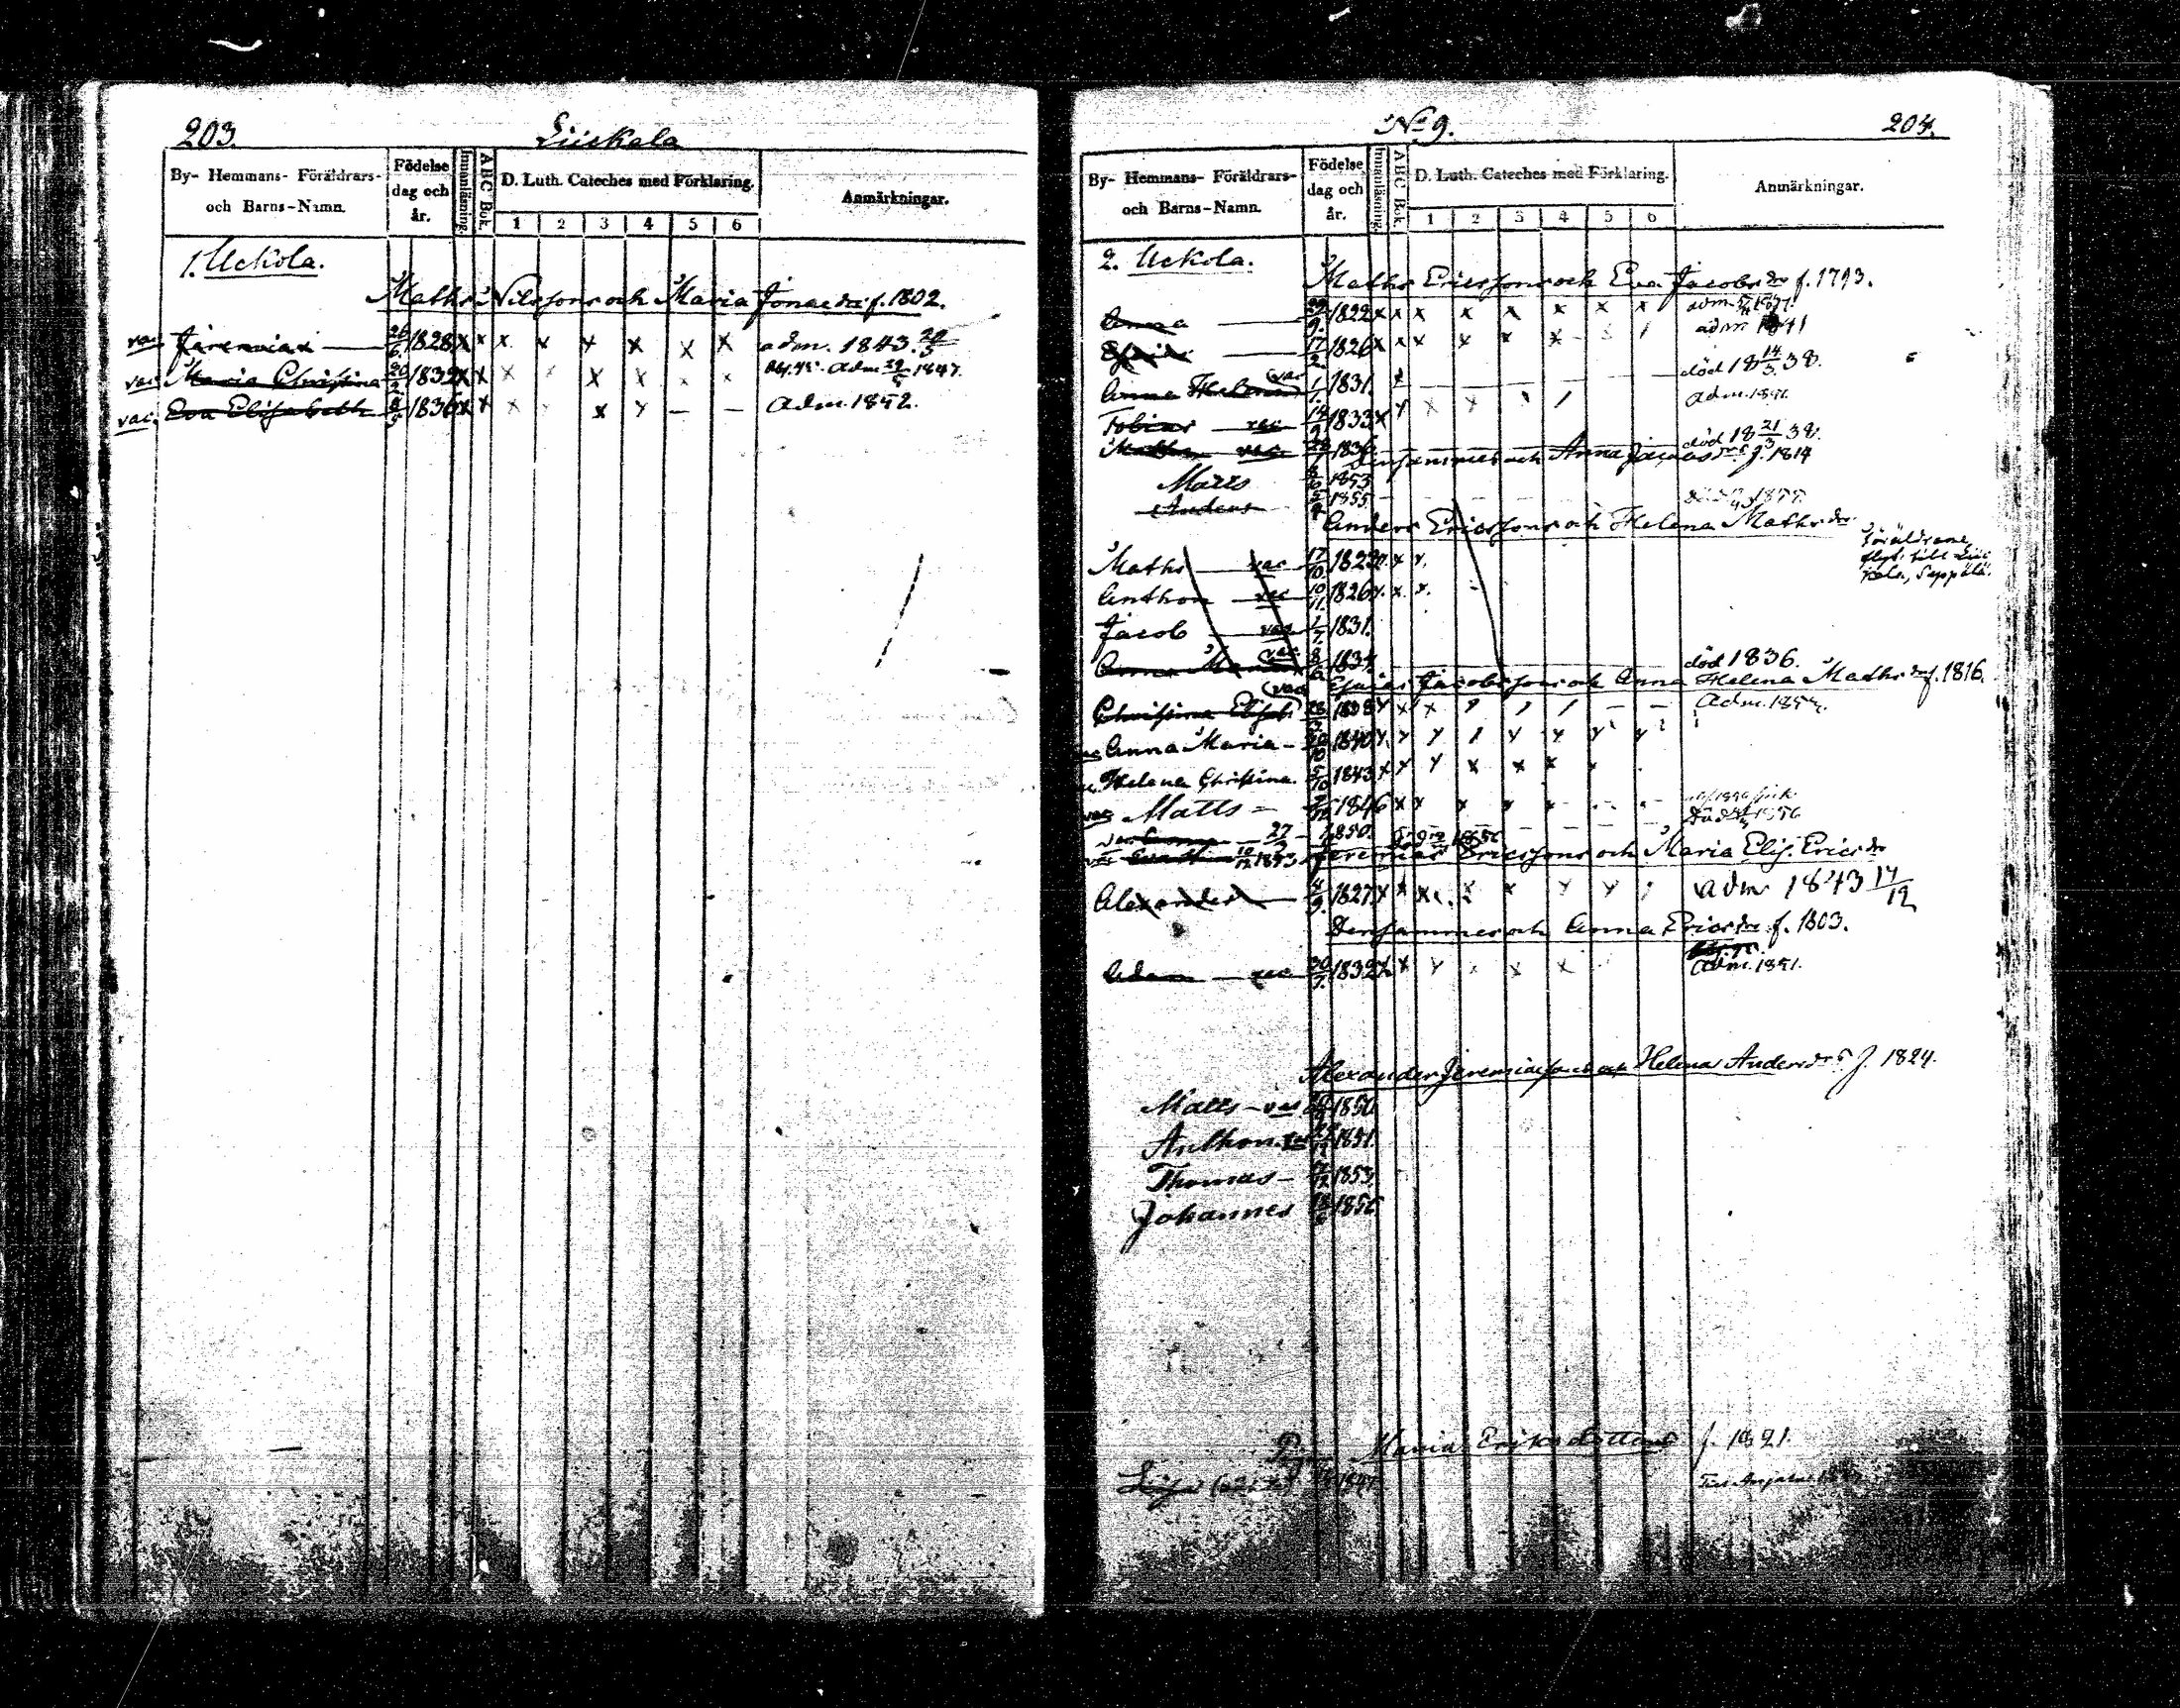 203.
Liiskala
By- Hemmans- Föräldrars- och Barns-Namn.
Födelse dag och år.
Innanläsning.
ABC Bok.
D. Luth. Cateches med Förklaring.
1 2 3 4 5 6
Anmärkningar.
1. Uckola.
Maths Nilssons och Maria Jonae dr f. 1802.
vac Jeremias 26/6 1828 x x x x x x x x adm. 1843.
vac Maria Christina 20/2 1832 x x x x x x x x adm 1847.
vac. Eva Elisabeth 1836 x x x x x x — — adm. 1852.
No 9.
204.
By- Hemmans- Föräldrars- och Barns-Namn.
Födelse dag och år.
Innanläsning.
ABC Bok.
D. Luth. Cateches med Förklaring.
1 2 3 4 5 6
Anmärkningar.
2. Uckola.
Maths Ericssons och Eva Jacobs dr f. 1793.
Anna 1822 x x x x x x x x
17/2 1826 x x x x x x
Anna Helena vac 1/1 1831. x död 18 14/3 38.
Tobias vac 1833 x x x x
Maths vac 1836 död 18 21/3 38.
Densammes och Anna Jacobs dr f. 1814
Matts 1853
Anders 1855
Anders Ericssons och Helena Maths dr
Föräldrarne flytt till Liiskala, Seppälä.
Maths vac 17/10 1822 x x
Anthon vac 10/11 1826 x x x
Jacob vac 1/7 1831.
Anna Maria vac 8/6 död 1836.
Esaias Jacobssons och Anna Helena Maths dr f. 1816.
Christina Elisab. vac 1838 x x x
Anna Maria 1840
Helena Christina. 5/10 1843 x x x x x x
vac Matts 1846 x x x x x
27 1850.
10/12 1853
Jeremias Ericssons och Maria Elis. Erics dr
Alexander 4/9 1827 x x x x x adm 1843 17/12
Densammes och Anna Erics dr f. 1803.
Adam vac 30/7 1832 x x x x x adm. 1851.
Alexander Jeremiassons och Helena Anders dr f. 1824.
Matts vac 1850
Anthon 1851.
Thomas 1853.
Johannes
Maria Eriksdotter f. 1821.